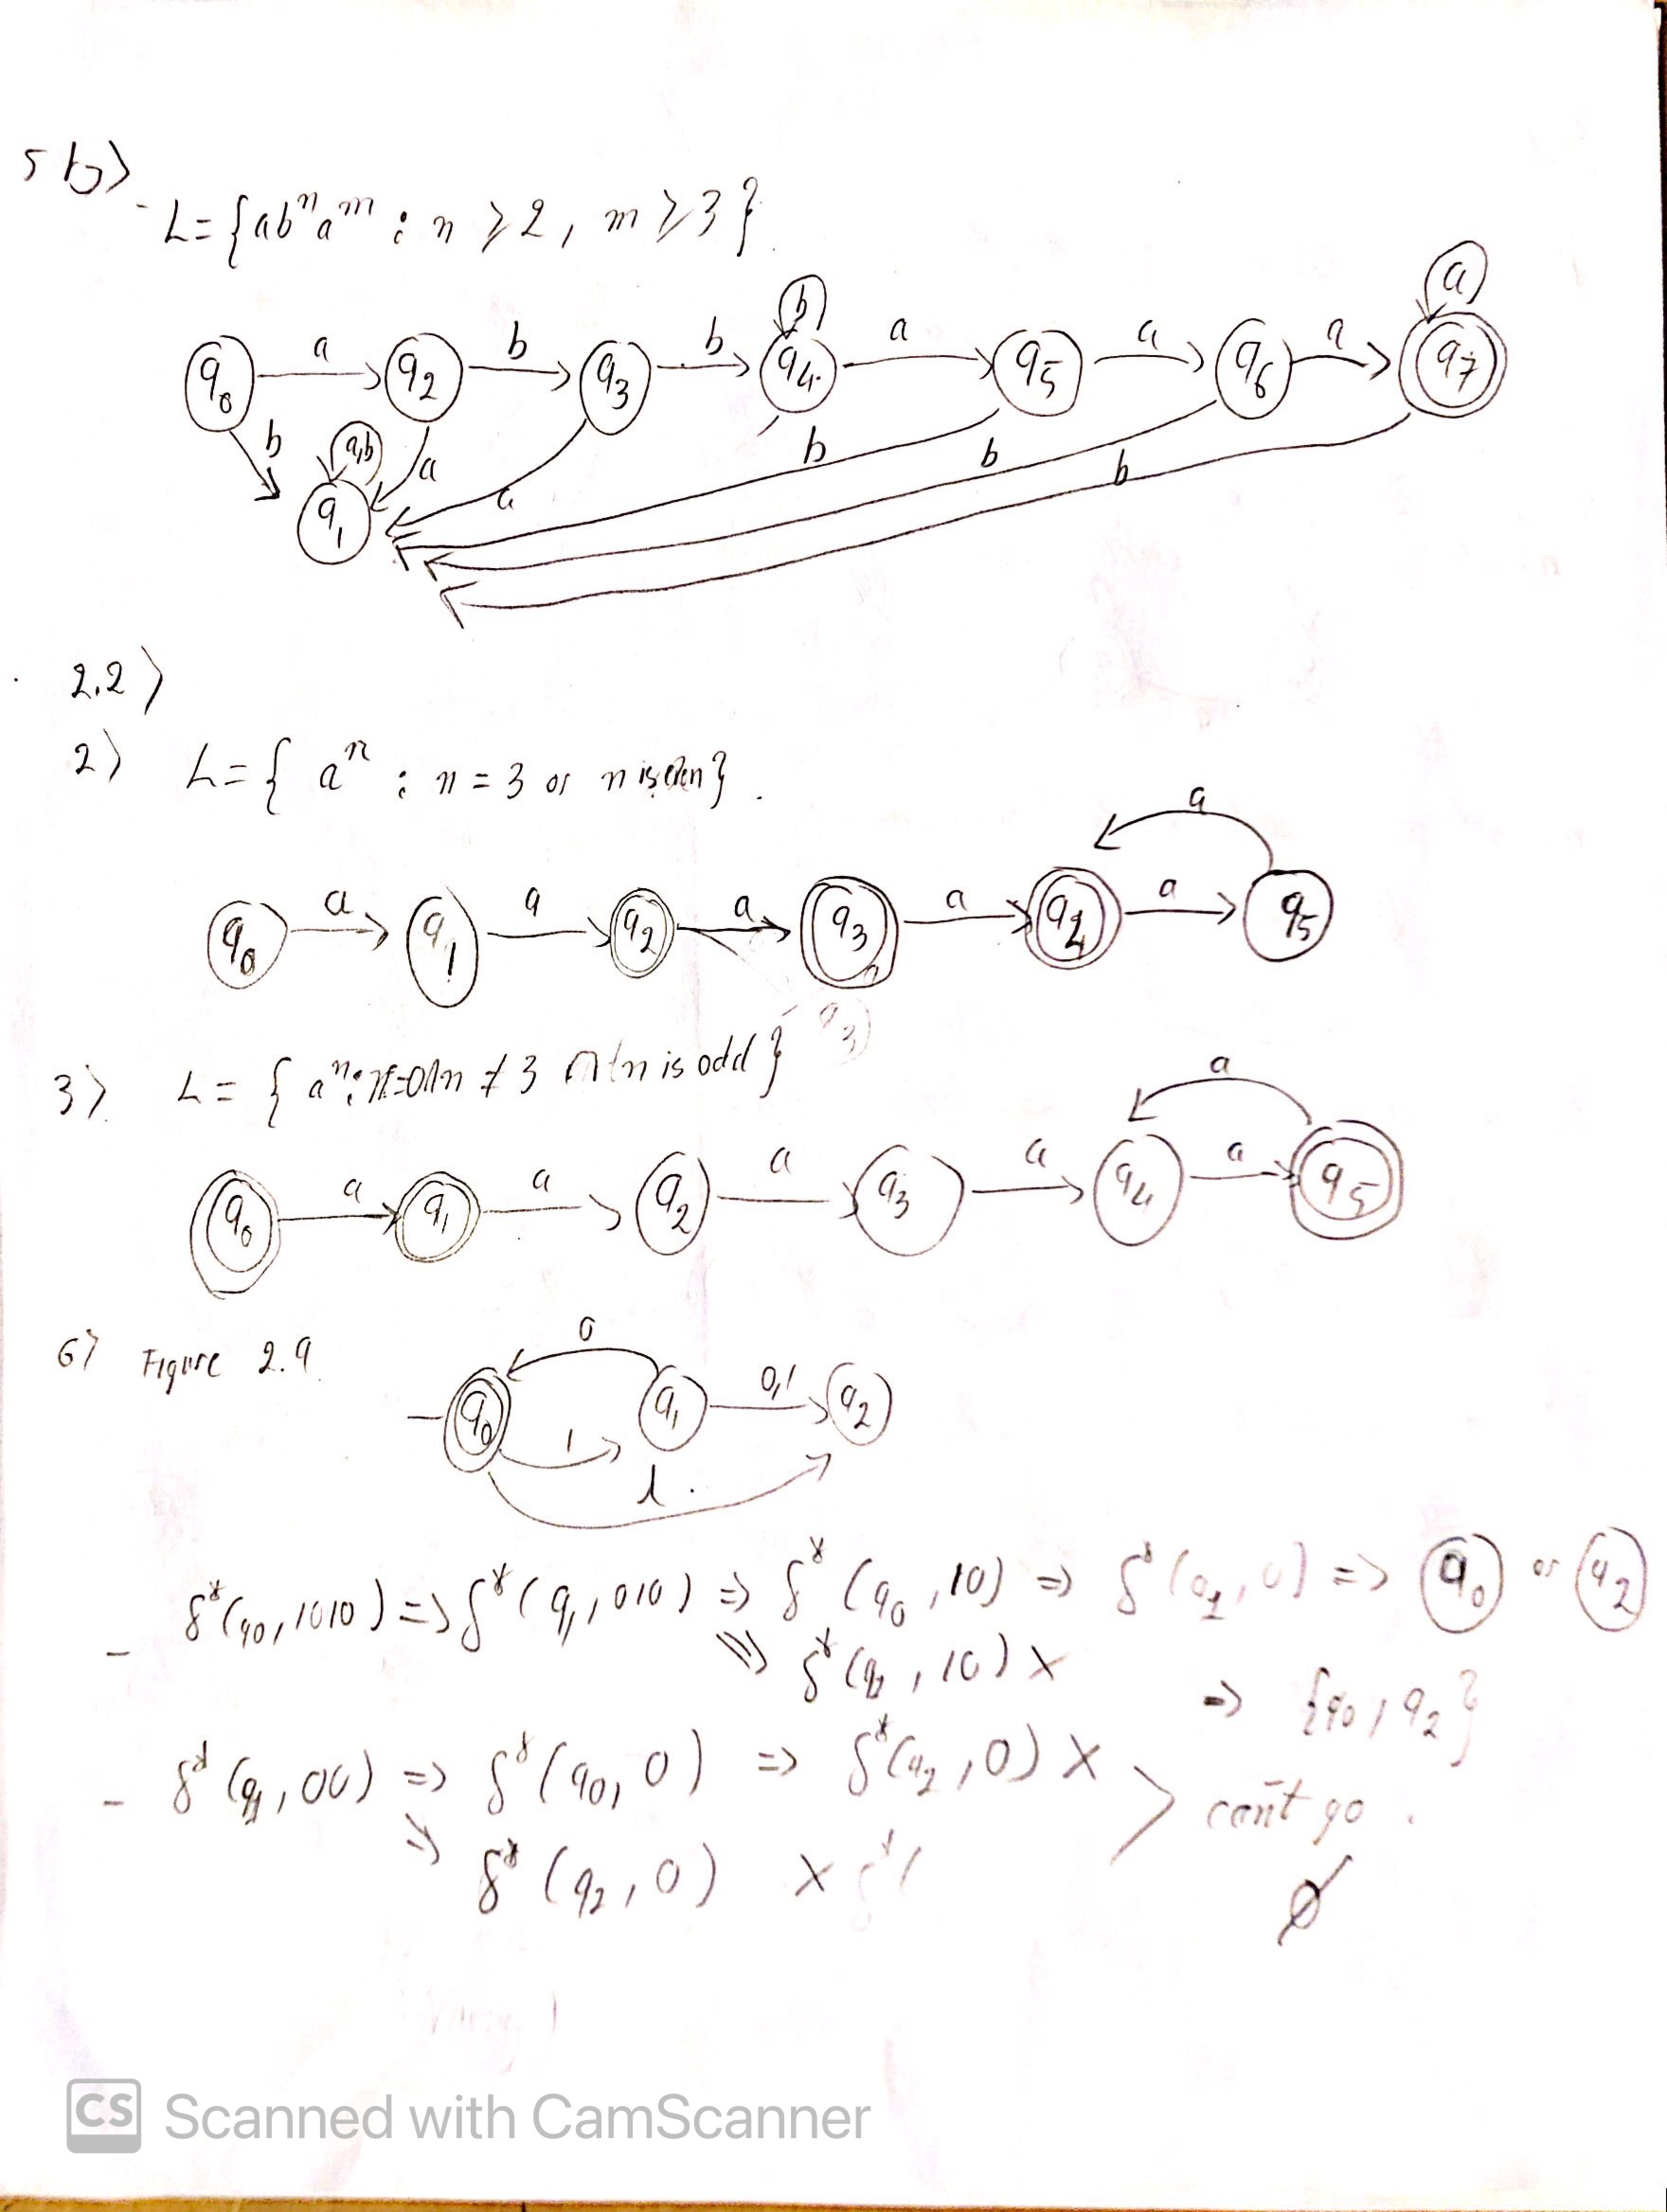 5 b)
L = { abⁿaᵐ : n ≥ 2, m ≥ 3 }
b a
q₀ a q₂ b q₃ b q₄ a q₅ a q₆ a q₇
b a,b a a b b b
q₁
2.2)
2) L = { aⁿ : n = 3 or n is even } .
a
q₀ a q₁ a q₂ a q₃ a q₄ a q₅
q₃
3) L = { aⁿ : n ≠ 3 n is odd }
a
q₀ a q₁ a q₂ a q₃ a q₄ a q₅
6) Figure 2.9
0
q₀ 1 q₁ 0,1 q₂
λ .
- δ*(q₀, 1010) => δ*(q₁, 010) => δ*(q₀, 10) => δ*(q₁, 0) => q₀ or q₂
=> δ*(q₂, 10) X
=> {q₀, q₂}
- δ*(q₁, 00) => δ*(q₀, 0) => δ*(q₂, 0) X > can't go .
=> δ*(q₂, 0) X
∅
CS Scanned with CamScanner